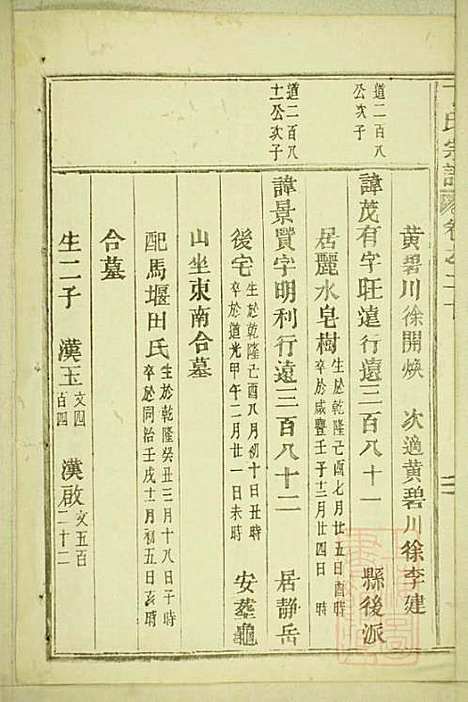 氏宗譜
黃碧川徐開煥 次適黃碧川徐李建
道二百八
公次子
諱茂有字旺遠行遠三百八十一 縣後派
居麗水皂樹 生於乾隆己酉七月廿五日酉時
卒於咸豐壬子十二月廿四日 時
道二百八
十一公次子
諱景賢字明利行遠三百八十二 居靜岳
後宅 生於乾隆己酉八月初十日丑時
卒於道光甲午二月廿一日未時 安塟龜
山坐東南合墓
配馬堰田氏 生於乾隆癸丑三月十八日子時
卒於同治壬戌十一月初五日亥時
合墓
生二子 漢玉 文四
百四 漢啟 文五百
二十二